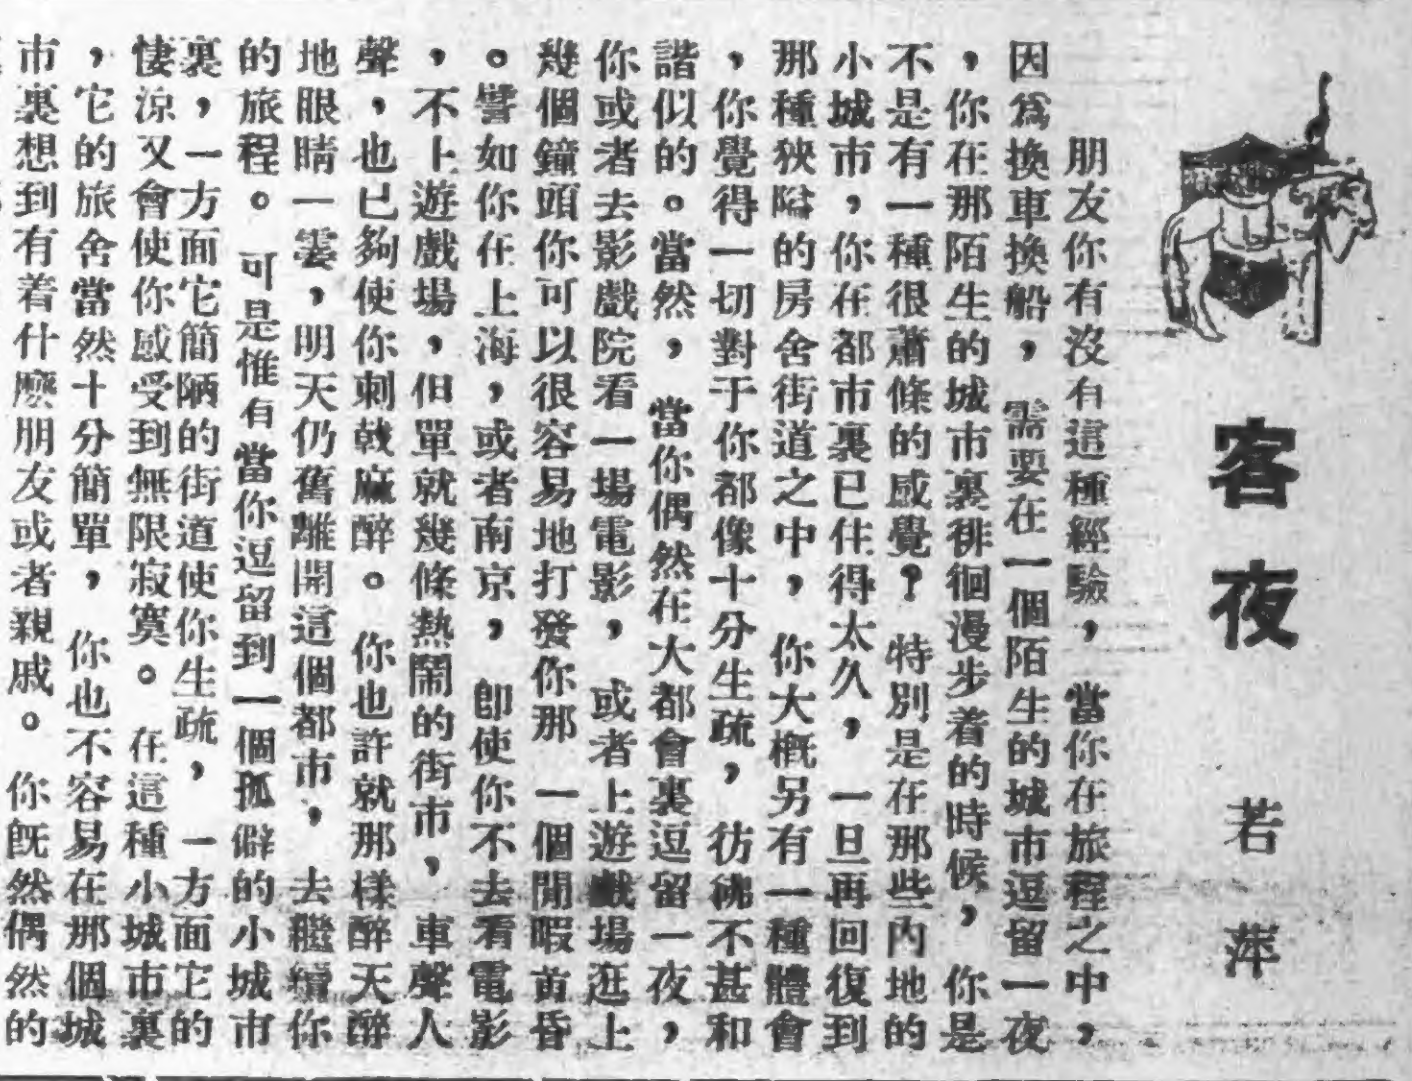 客夜
若萍
朋友你有沒有這種經驗，當你在旅程之中，
因爲換車換船，需要在一個陌生的城市逗留一夜
，你在那陌生的城市裏徘徊漫步着的時候，你是
不是有一種很蕭條的感覺？特別是在那些內地的
小城市，你在都市裏已住得太久，一旦再回復到
那種狹隘的房舍街道之中，你大概另有一種體會
，你覺得一切對于你都像十分生疏，彷彿不甚和
諧似的。當然，當你偶然在大都會裏逗留一夜，
你或者去影戲院看一場電影，或者上遊戲場逛上
幾個鐘頭你可以很容易地打發你那一個閒暇黃昏
。譬如你在上海，或者南京，卽使你不去看電影
，不上遊戲場，但單就幾條熱鬧的街市，車聲人
聲，也已夠使你刺戟麻醉。你也許就那樣醉天醉
地眼睛一霎，明天仍舊離開這個都市，去繼續你
的旅程。可是惟有當你逗留到一個孤僻的小城市
裏，一方面它簡陋的街道使你生疏，一方面它的
悽涼又會使你感受到無限寂寞。在這種小城市裏
，它的旅舍當然十分簡單，你也不容易在那個城
市裏想到有着什麼朋友或者親戚。你旣然偶然的